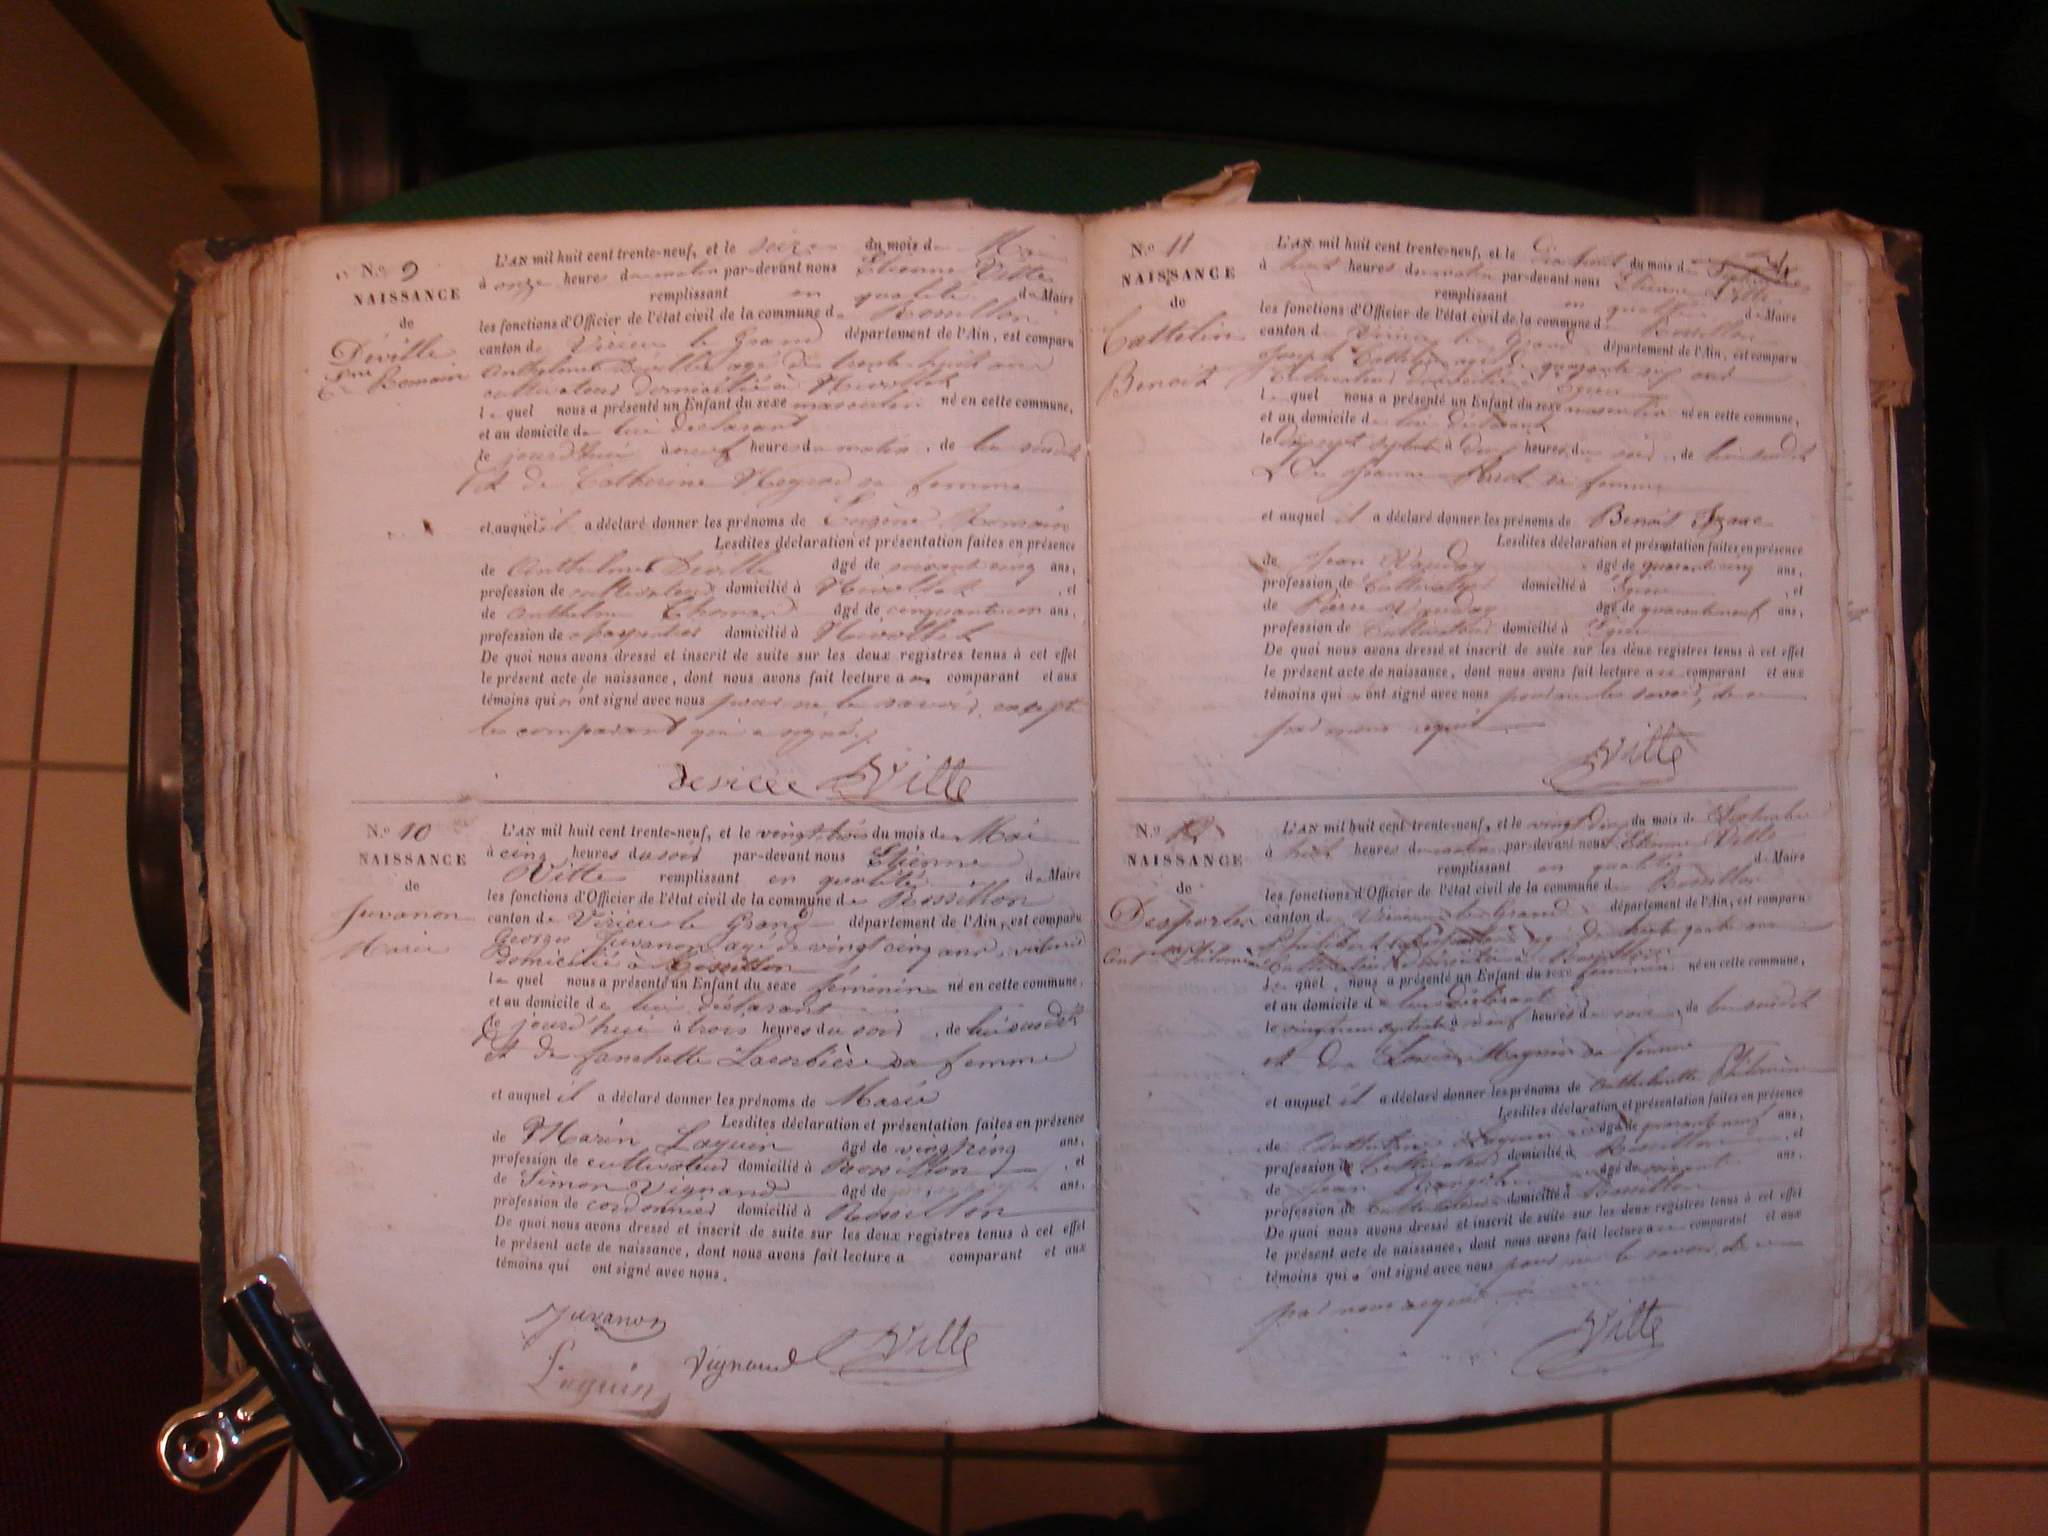 N.º 9
NAISSANCE
de
Déville
Romain
L'AN mil huit cent trente-neuf, et le seize du mois de Mai
à onze heures du matin par-devant nous Etienne Ville
remplissant en qualité de Maire
les fonctions d'Officier de l'état civil de la commune de Rossillon
canton de Virieu le Grand département de l'Ain, est comparu
Anthelme Déville agé de trente huit ans
cultivateur domicilié à Nivollet
lequel nous a présenté un Enfant du sexe masculin né en cette commune,
et au domicile de lui déclarant
le jourd'hui à neuf heures du matin, de lui susdit
et de Catherine sa femme
et auquel il a déclaré donner les prénoms de Romain
Lesdites déclaration et présentation faites en présence
de Anthelme Déville âgé de soixante cinq ans,
profession de cultivateur domicilié à Nivollet, et
de Anthelme âgé de ans,
profession de charpentier domicilié à Nivollet
De quoi nous avons dressé et inscrit de suite sur les deux registres tenus à cet effet
le présent acte de naissance, dont nous avons fait lecture au comparant et aux
témoins qui n'ont signé avec nous pour ne le savoir, excepté
le comparant qui a signé
deville Ville
N.º 10
NAISSANCE
de
Juvanon
Marie
L'AN mil huit cent trente-neuf, et le vingt trois du mois de Mai
à cinq heures du soir par-devant nous Etienne
Ville remplissant en qualité de Maire
les fonctions d'Officier de l'état civil de la commune de Rossillon
canton de Virieu le Grand département de l'Ain, est comparu
Georges Juvanon agé de vingt cinq ans,
domicilié à Rossillon
lequel nous a présenté un Enfant du sexe féminin né en cette commune,
et au domicile de lui déclarant
le jourd'hui à trois heures du soir, de lui susdit
et de fanchette Lacorbière sa femme
et auquel il a déclaré donner les prénoms de Marie
Lesdites déclaration et présentation faites en présence
de Marin Laguin âgé de vingt cinq ans,
profession de cultivateur domicilié à Rossillon, et
de Simon Vignand âgé de ans,
profession de cordonnier domicilié à Rossillon
De quoi nous avons dressé et inscrit de suite sur les deux registres tenus à cet effet
le présent acte de naissance, dont nous avons fait lecture a comparant et aux
témoins qui ont signé avec nous.
Juvanon
Laguin Vignand Ville
N.º 11
NAISSANCE
de
Cattelin
Benoit
L'AN mil huit cent trente-neuf, et le Dix huit du mois de
à huit heures du matin par-devant nous Etienne Ville
remplissant en qualité de Maire
les fonctions d'Officier de l'état civil de la commune de Rossillon
canton de Virieu le Grand département de l'Ain, est comparu
Joseph Cattelin agé de quarante neuf ans
Cultivateur domicilié à
lequel nous a présenté un Enfant du sexe masculin né en cette commune,
et au domicile de lui déclarant
le dix sept septembre à heures du soir, de lui susdit
et De Jeanne sa femme
et auquel il a déclaré donner les prénoms de Benoit
Lesdites déclaration et présentation faites en présence
de Jean âgé de quarante cinq ans,
profession de Cultivateur domicilié à, et
de Pierre âgé de quarante neuf ans,
profession de Cultivateur domicilié à
De quoi nous avons dressé et inscrit de suite sur les deux registres tenus à cet effet
le présent acte de naissance, dont nous avons fait lecture au comparant et aux
témoins qui n'ont signé avec nous pour ne le savoir, de ce
par nous requis
Ville
N.º 12
NAISSANCE
de
Desportes
L'AN mil huit cent trente-neuf, et le vingt deux du mois de Septembre
à huit heures du matin par-devant nous Etienne Ville
remplissant en qualité de Maire
les fonctions d'Officier de l'état civil de la commune de Rossillon
canton de Virieu le Grand département de l'Ain, est comparu
agé de trente quatre ans
Cultivateur domicilié à Rossillon
lequel nous a présenté un Enfant du sexe féminin né en cette commune,
et au domicile de lui déclarant
le septembre à neuf heures du soir, de lui susdit
et de Louise sa femme
et auquel il a déclaré donner les prénoms de Anthelmette
Lesdites déclaration et présentation faites en présence
de Anthelme âgé de ans,
profession de Cultivateur domicilié à Rossillon, et
de Jean âgé de soixante ans,
profession de Cultivateur domicilié à Rossillon
De quoi nous avons dressé et inscrit de suite sur les deux registres tenus à cet effet
le présent acte de naissance, dont nous avons fait lecture au comparant et aux
témoins qui n'ont signé avec nous pour ne le savoir, de ce
par nous requis
Ville